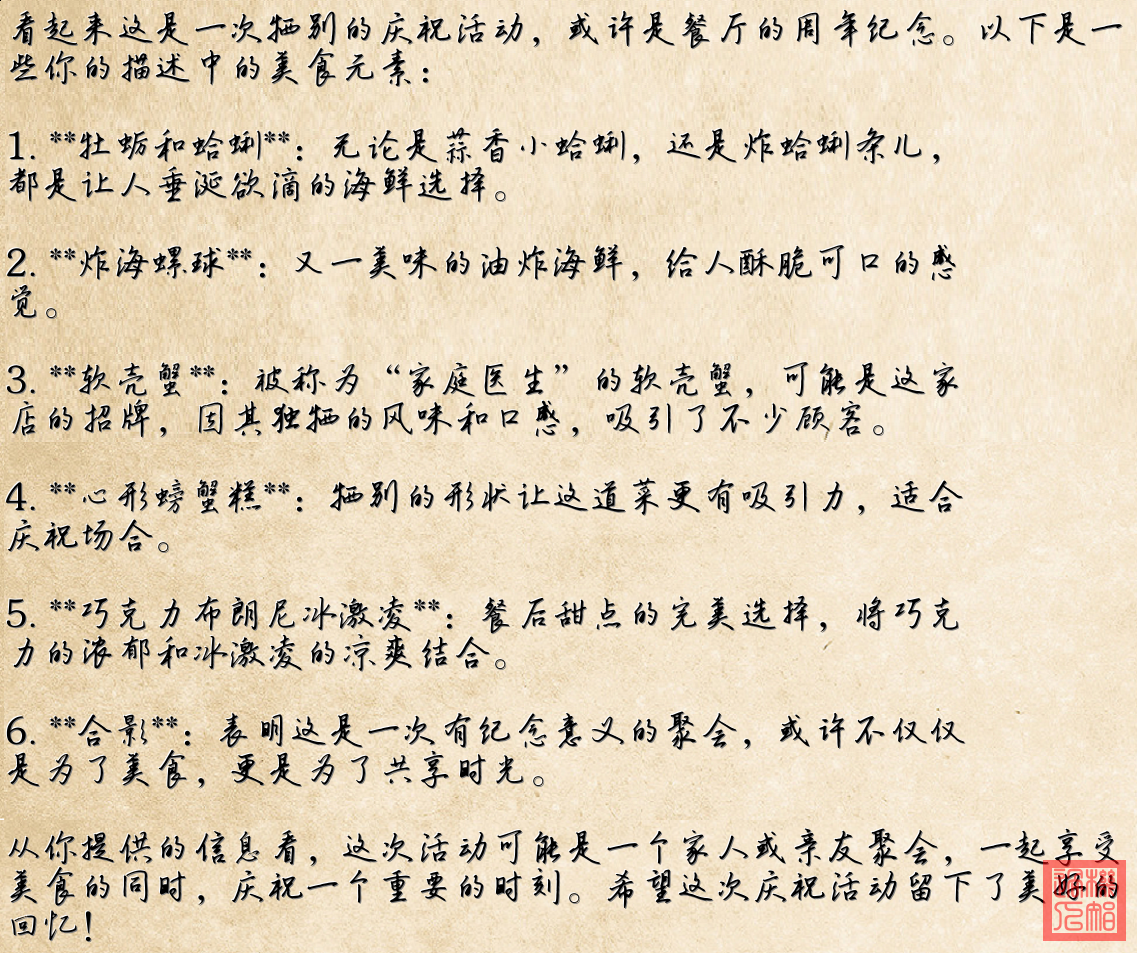 看起来这是一次特别的庆祝活动，或许是餐厅的周年纪念。以下是一
些你的描述中的美食元素：
1. **牡蛎和蛤蜊**：无论是蒜香小蛤蜊，还是炸蛤蜊条儿，
都是让人垂涎欲滴的海鲜选择。
2. **炸海螺球**：又一美味的油炸海鲜，给人酥脆可口的感
觉。
3. **软壳蟹**：被称为“家庭医生”的软壳蟹，可能是这家
店的招牌，因其独特的风味和口感，吸引了不少顾客。
4. **心形螃蟹糕**：特别的形状让这道菜更有吸引力，适合
庆祝场合。
5. **巧克力布朗尼冰激凌**：餐后甜点的完美选择，将巧克
力的浓郁和冰激凌的凉爽结合。
6. **合影**：表明这是一次有纪念意义的聚会，或许不仅仅
是为了美食，更是为了共享时光。
从你提供的信息看，这次活动可能是一个家人或亲友聚会，一起享受
美食的同时，庆祝一个重要的时刻。希望这次庆祝活动留下了美好的
回忆！